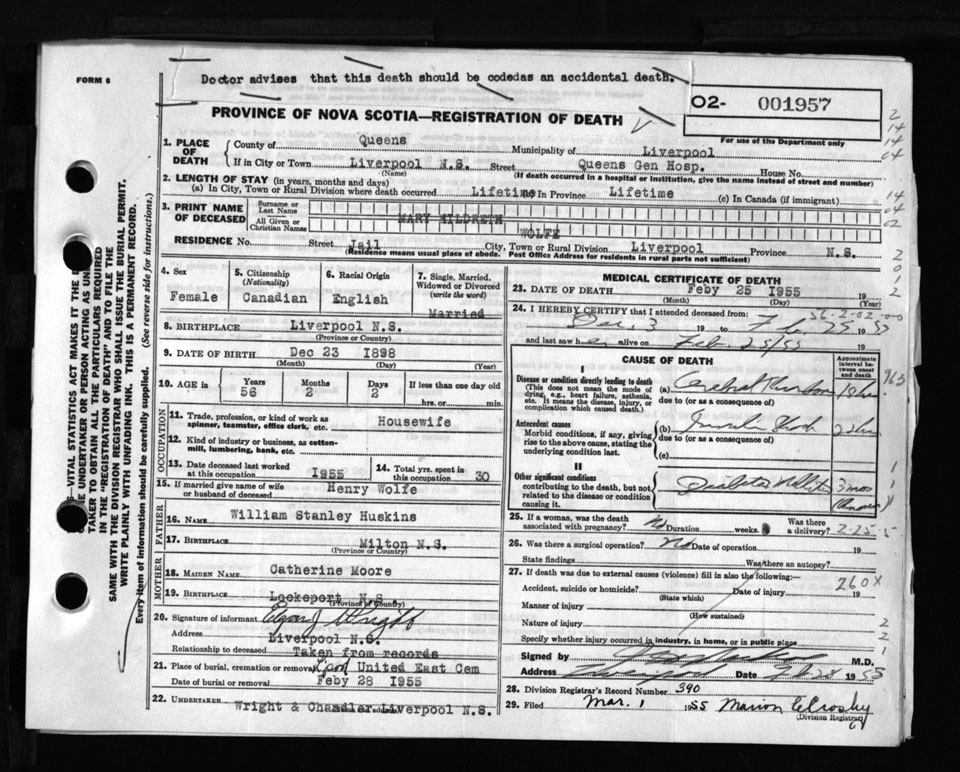 FORM 6
Doctor advises that this death should be codedas an accidental death.
O2- 001957
PROVINCE OF NOVA SCOTIA—REGISTRATION OF DEATH
For use of the Department only
1. PLACE OF DEATH
County of Queens Municipality of Liverpool
If in City or Town Liverpool N.S. Street Queens Gen Hosp. House No.
(Name) (If death occurred in a hospital or institution, give the name instead of street and number)
2. LENGTH OF STAY (in years, months and days)
(a) In City, Town or Rural Division where death occurred Lifetime In Province Lifetime (c) In Canada (if immigrant)
3. PRINT NAME OF DECEASED
Surname or Last Name
All Given or Christian Names
MARY HILDRETH
WOLFE
RESIDENCE No. Street Jail City, Town or Rural Division Liverpool Province N.S.
(Residence means usual place of abode. Post Office Address for residents in rural parts not sufficient)
4. Sex
Female
5. Citizenship (Nationality)
Canadian
6. Racial Origin
English
7. Single, Married, Widowed or Divorced (write the word)
Married
8. BIRTHPLACE Liverpool N.S.
(Province or Country)
9. DATE OF BIRTH Dec 23 1898
(Month) (Day) (Year)
10. AGE IN
Years Months Days If less than one day old
56 2 2 hrs. or min.
OCCUPATION
11. Trade, profession, or kind of work as spinner, teamster, office clerk, etc. Housewife
12. Kind of industry or business, as cotton-mill, lumbering, bank, etc.
13. Date deceased last worked at this occupation 1955
14. Total yrs. spent in this occupation 30
15. If married give name of wife or husband of deceased Henry Wolfe
FATHER
16. NAME William Stanley Huskins
17. BIRTHPLACE Milton N.S.
(Province or Country)
MOTHER
18. MAIDEN NAME Catherine Moore
19. BIRTHPLACE Lockeport N.S.
(Province or Country)
20. Signature of informant Wright
Address Liverpool N.S.
Relationship to deceased Taken from records
21. Place of burial, cremation or removal Lpool United East Cem
Date of burial or removal Feby 28 1955
22. UNDERTAKER Wright & Chandler Liverpool N.S.
MEDICAL CERTIFICATE OF DEATH
23. DATE OF DEATH Feby 25 1955 19
(Month) (Day) (Year)
56-2-02-00
24. I HEREBY CERTIFY that I attended deceased from:
Dec. 3 19 to Feb 25 1955
and last saw h alive on Feb. 25/55 19
CAUSE OF DEATH
Approximate interval between onset and death
963
I
Disease or condition directly leading to death
(This does not mean the mode of dying, e.g., heart failure, asthenia, etc. It means the disease, injury, or complication which caused death.)
(a) Cerebral
due to (or as a consequence of)
Antecedent causes
Morbid conditions, if any, giving rise to the above cause, stating the underlying condition last.
(b) Insulin Shock
due to (or as a consequence of)
(c)
II
Other significant conditions
contributing to the death, but not related to the disease or condition causing it.
Diabetes Mellitus 3 mos
25. If a woman, was the death associated with pregnancy? No Duration weeks. Was there a delivery? 2-25-5
26. Was there a surgical operation? No Date of operation 19
State findings Was there an autopsy?
27. If death was due to external causes (violence) fill in also the following:—
260X
Accident, suicide or homicide? Date of injury 19
(State which)
Manner of injury
(How sustained)
Nature of injury
Specify whether injury occurred in industry, in home, or in public place
Signed by M.D.
Address Liverpool Date 1955
28. Division Registrar's Record Number 390
29. Filed Mar. 1 1955 Marion E Crosby
(Division Registrar)
VITAL STATISTICS ACT MAKES IT THE D
THE UNDERTAKER OR PERSON ACTING AS UND
TAKER TO OBTAIN ALL THE PARTICULARS REQUIRED
IN THE "REGISTRATION OF DEATH" AND TO FILE THE
SAME WITH THE DIVISION REGISTRAR WHO SHALL ISSUE THE BURIAL PERMIT.
WRITE PLAINLY WITH UNFADING INK. THIS IS A PERMANENT RECORD.
Every item of information should be carefully supplied. (See reverse side for instructions.)
2
14
14
04
14
04
02
2
0
1
2
1
1
2
2
1